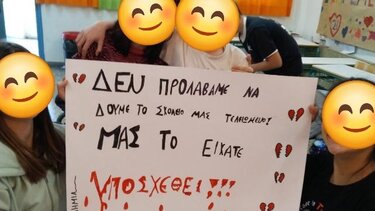 ΔΕΝ ΠΡΟΛΑΒΑΜΕ ΝΑ
ΔΟΥΜΕ ΤΟ ΣΧΟΛΕΙΟ ΜΑΣ ΤΕΛΕΙΩΜΕΝΟ!
ΜΑΣ ΤΟ ΕΙΧΑΤΕ
ΥΠΟΣΧΕΘΕΙ!!!